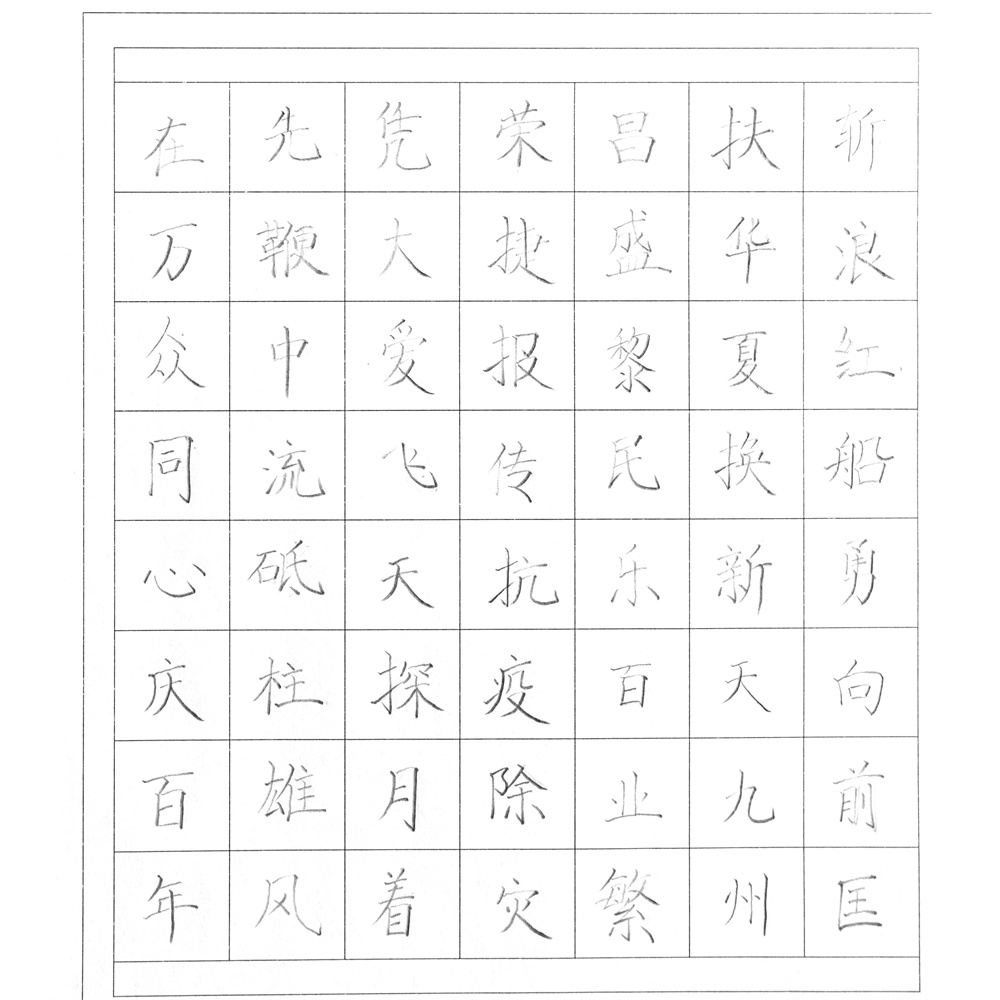 斩浪红船勇向前匡
扶华夏换新天九州
昌盛黎民乐百业繁
荣捷报传抗疫除灾
凭大爱飞天探月着
先鞭中流砥柱雄风
在万众同心庆百年